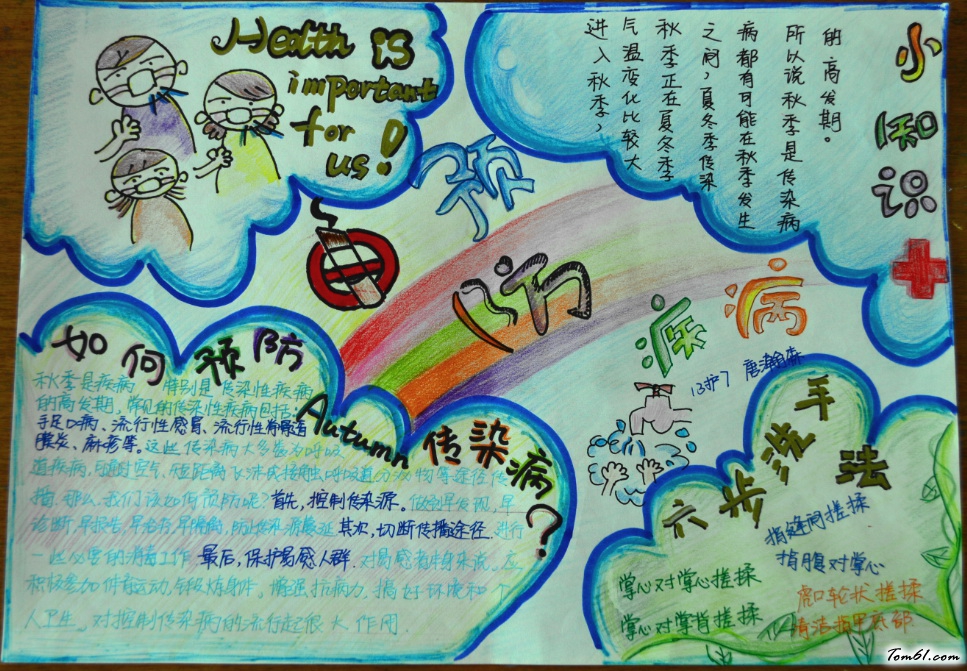 Health is
important
for
us!
小知识
进入秋季,
气温变化比较大
秋季正在夏冬季
之间,夏冬季传染
病都有可能在秋季发生
所以说秋季是传染病
的高发期。
预防疾病
13护7 唐瀚森
如何预防
Autumn
传染病?
秋季是疾病 特别是传染性疾病
的高发期,常见的传染性疾病包括:
手足口病、流行性感冒、流行性脊髓
膜炎、麻疹等。这些传染病大多
道疾病,可通过空气、短距离飞沫或接触呼吸道分泌物等途径传
播。那么,我们该如何预防呢?首先,控制传染源。做到早发现,早
诊断,早报告,早治疗,早隔离,防止传染源蔓延 其次,切断传播途径.进行
一些必要的消毒工作 最后,保护易感人群.对易感者本身来说。应
积极参加体育运动,锻炼身体。增强抗病力,搞好环境和个
人卫生。对控制传染病的流行起很大作用.
六步洗手法
掌心对掌心搓揉
掌心对掌背搓揉
指缝间搓揉
指腹对掌心
虎口轮状搓揉
清洁指甲底部
Tom61.com